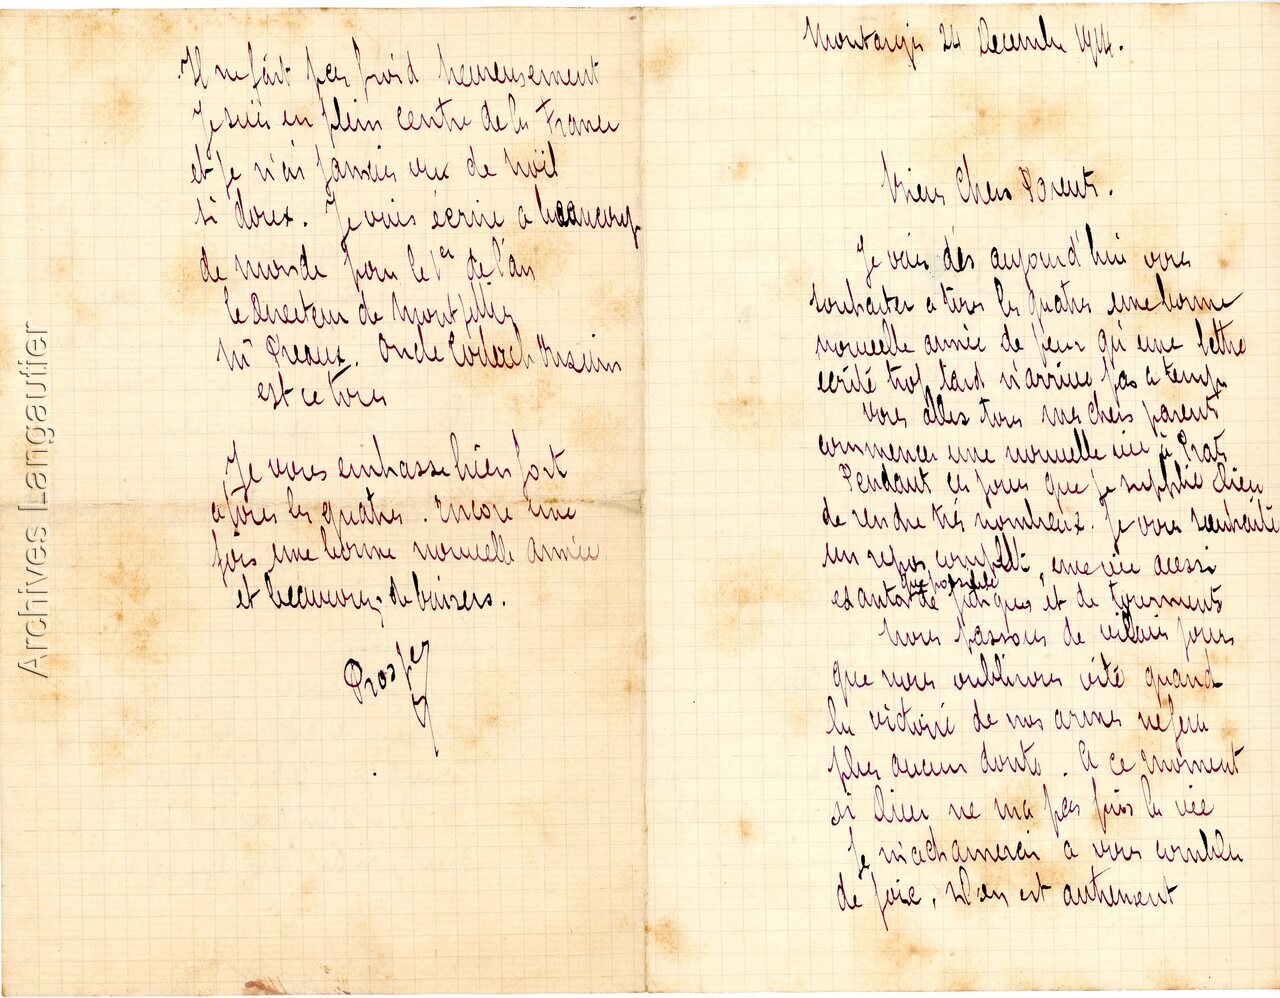 Montargis 24 Decembre 1914.
Mes Chers Parents.
Je vais dès aujourd'hui vous
souhaiter a tous les quatres une bonne
nouvelle année de peur qu'une lettre
écrite trop tard n'arrive pas a temps
vous allez tous mes chers parents
commencer une nouvelle vie à Prats
Pendant ces jours que je supplie Dieu
de rendre très nombreux. Je vous souhaite
un repos complet, une vie aussi
que possible
de fatigues et de tourments
Nous passons de vilains jours
que nous oublirons vite quand
la victoire de nos armes ne fera
plus aucun doute. A ce moment
si Dieu ne ma pas pris la vie
Je m'acharnerai a vous combler
de joie. est autrement
Il ne fait pas froid heureusement
Je suis en plein centre de la France
et je n'ai jamais vu de Noël
si doux. Je vais écrire a beaucoup
de monde pour le 1er de l'an
le Directeur de
Mr Preaux. Oncle
est ce tout
Je vous embrasse bien fort
a tous les quatres. Encore une
fois une bonne nouvelle année
et beaucoup de baisers.
Prosper
Archives Langautier